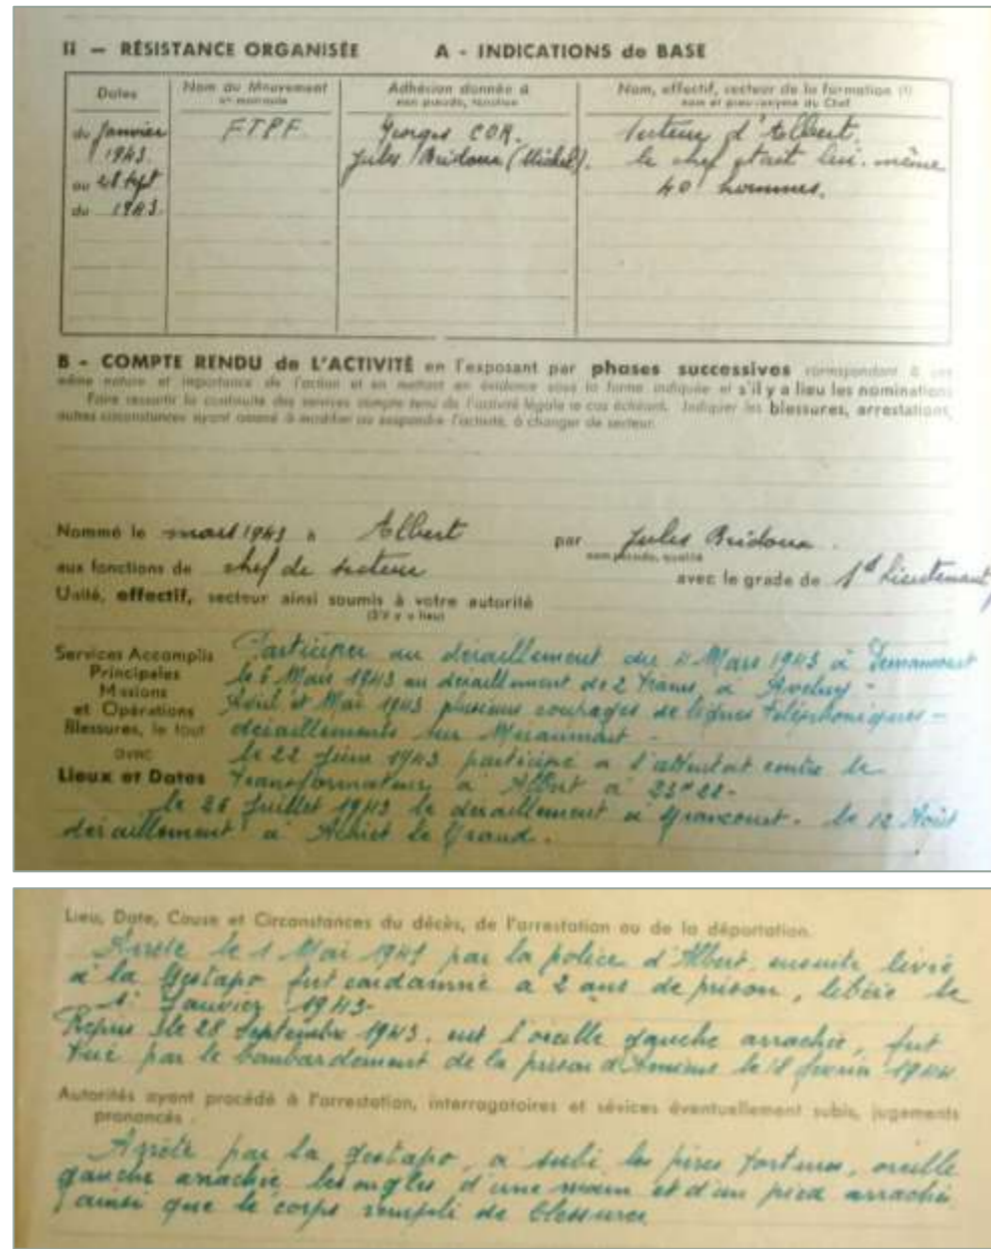 II — RÉSISTANCE ORGANISÉE A - INDICATIONS de BASE
Dates
Nom du Mouvement
Adhésion donnée à
nom pseudo, fonction
Nom, effectif, secteur de la formation (1)
nom et pseudonyme du Chef
du Janvier
1943
au 28 Sept
du 1943
FTPF
Georges COR.
Jules Bridoux (Michel).
Secteur d'Albert.
le chef était lui-même
40 hommes.
B - COMPTE RENDU de L'ACTIVITÉ en l'exposant par phases successives correspondant à une
même nature et importance de l'action et en mettant en évidence sous la forme indiquée et s'il y a lieu les nominations
Faire ressortir la continuité des services compte tenu de l'activité légale le cas échéant. Indiquer les blessures, arrestations,
autres circonstances ayant amené à modifier ou suspendre l'activité, à changer de secteur.
Nommé le mars 1943 à Albert par Jules Bridoux.
nom pseudo, qualité
aux fonctions de chef de secteur avec le grade de Lieutenant
Unité, effectif, secteur ainsi soumis à votre autorité
(S'il y a lieu)
Services Accomplis
Principales
Missions
et Opérations
Blessures, le tout
avec
Lieux et Dates
Participer au déraillement du Mars 1943 à
le 6 Mars 1943 au déraillement de 2 trains à Aveluy -
Avril et Mai 1943 plusieurs coupages de lignes téléphoniques -
déraillements sur Miraumont -
le 22 Juin 1943 participé a l'attentat contre le
transformateur à Albert à
le 26 Juillet 1943 le déraillement à . le 12 Août
déraillement à Achiet le Grand.
Lieu, Date, Cause et Circonstances du décès, de l'arrestation ou de la déportation.
Arrêté le 1 Mai par la police d'Albert ensuite livré
à la Gestapo fut condamné a 2 ans de prison, libéré le
1er Janvier 1943-
Repris le 28 Septembre 1943. eut l'oreille gauche arrachée, fut
tué par le bombardement de la prison d'Amiens le 18 février 1944
Autorités ayant procédé à l'arrestation, interrogatoires et sévices éventuellement subis, jugements
prononcés :
Arrêté par la gestapo, a subi les pires tortures, oreille
gauche arrachée les ongles d'une main et d'un pied arrachés
ainsi que le corps rempli de blessures